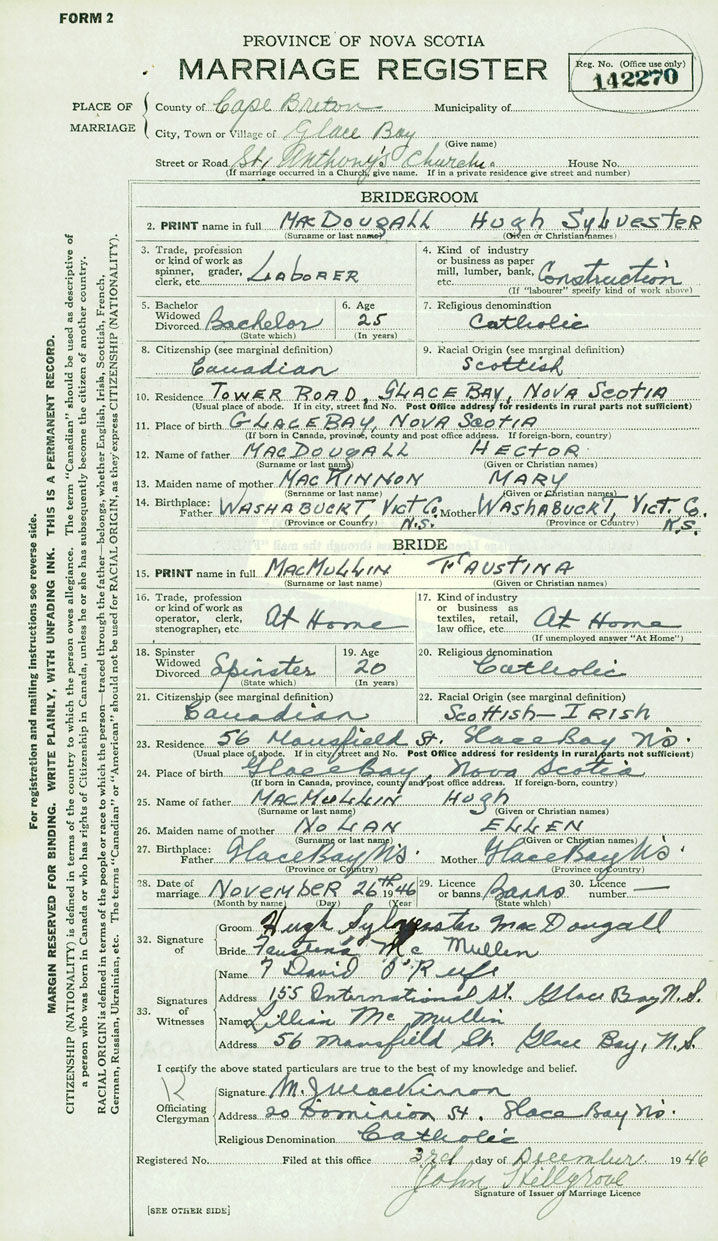 FORM 2
PROVINCE OF NOVA SCOTIA
MARRIAGE REGISTER
Reg. No. (Office use only)
142270
PLACE OF MARRIAGE
County of Cape Breton Municipality of
City, Town or Village of Glace Bay
(Give name)
Street or Road St. Anthony's Church House No.
(If marriage occurred in a Church, give name. If in a private residence give street and number)
BRIDEGROOM
2. PRINT name in full MacDougall Hugh Sylvester
(Surname or last name) (Given or Christian names)
3. Trade, profession or kind of work as spinner, grader, clerk, etc. Laborer
4. Kind of industry or business as paper mill, lumber, bank, etc. Construction
(If "labourer" specify kind of work above)
5. Bachelor Widowed Divorced Bachelor
(State which)
6. Age 25
(In years)
7. Religious denomination
Catholic
8. Citizenship (see marginal definition)
Canadian
9. Racial Origin (see marginal definition)
Scottish
10. Residence Tower Road, Glace Bay, Nova Scotia
(Usual place of abode. If in city, street and No. Post Office address for residents in rural parts not sufficient)
11. Place of birth Glace Bay, Nova Scotia
(If born in Canada, province, county and post office address. If foreign-born, country)
12. Name of father MacDougall Hector
(Surname or last name) (Given or Christian names)
13. Maiden name of mother MacKinnon Mary
(Surname or last name) (Given or Christian names)
14. Birthplace: Father Washabuckt, Vict Co. N.S. Mother Washabuckt, Vict. Co. N.S.
(Province or Country) (Province or Country)
BRIDE
15. PRINT name in full MacMullin Faustina
(Surname or last name) (Given or Christian names)
16. Trade, profession or kind of work as operator, clerk, stenographer, etc. At Home
17. Kind of industry or business as textiles, retail, law office, etc. At Home
(If unemployed answer "At Home")
18. Spinster Widowed Divorced Spinster
(State which)
19. Age 20
(In years)
20. Religious denomination
Catholic
21. Citizenship (see marginal definition)
Canadian
22. Racial Origin (see marginal definition)
Scottish-Irish
23. Residence 56 Mansfield St. Glace Bay N.S.
(Usual place of abode. If in city, street and No. Post Office address for residents in rural parts not sufficient)
24. Place of birth Glace Bay, Nova Scotia
(If born in Canada, province, county and post office address. If foreign-born, country)
25. Name of father MacMullin Hugh
(Surname or last name) (Given or Christian names)
26. Maiden name of mother Nolan Ellen
(Surname or last name) (Given or Christian names)
27. Birthplace: Father Glace Bay N.S. Mother Glace Bay N.S.
(Province or Country) (Province or Country)
28. Date of marriage November 26th 1946
(Month by name) (Day) (Year)
29. Licence or banns Banns
(State which)
30. Licence number —
32. Signature of
Groom Hugh Sylvester MacDougall
Bride Faustina Mc Mullin
33. Signatures of Witnesses
Name David
Address 155 International St. Glace Bay N.S.
Name Lillian Mc Mullin
Address 56 Mansfield St. Glace Bay, N.S.
I certify the above stated particulars are true to the best of my knowledge and belief.
Officiating Clergyman
Signature M. J. MacKinnon
Address 20 Dominion St. Glace Bay N.S.
Religious Denomination Catholic
Registered No. Filed at this office 3rd day of December 1946
John Hillgrove
Signature of Issuer of Marriage Licence
[SEE OTHER SIDE]
For registration and mailing instructions see reverse side.
MARGIN RESERVED FOR BINDING. WRITE PLAINLY, WITH UNFADING INK. THIS IS A PERMANENT RECORD.
CITIZENSHIP (NATIONALITY) is defined in terms of the country to which the person owes allegiance. The term "Canadian" should be used as descriptive of
a person who was born in Canada or who has rights of Citizenship in Canada, unless he or she has subsequently become the citizen of another country.
RACIAL ORIGIN is defined in terms of the people or race to which the person—traced through the father—belongs, whether English, Irish, Scottish, French,
German, Russian, Ukrainian, etc. The terms "Canadian" or "American" should not be used for RACIAL ORIGIN, as they express CITIZENSHIP (NATIONALITY).